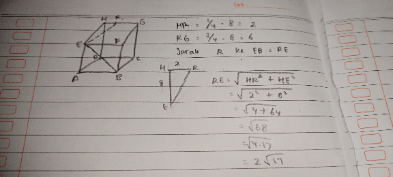 H R G
E F
D C
A B
HR = 1/4 · 8 = 2
RG = 3/4 · 8 = 6
Jarak R ke EB = RE
H 2 R
8
E
RE = √HR² + HE²
= √2² + 8²
= √4 + 64
= √68
= √4·17
= 2√17